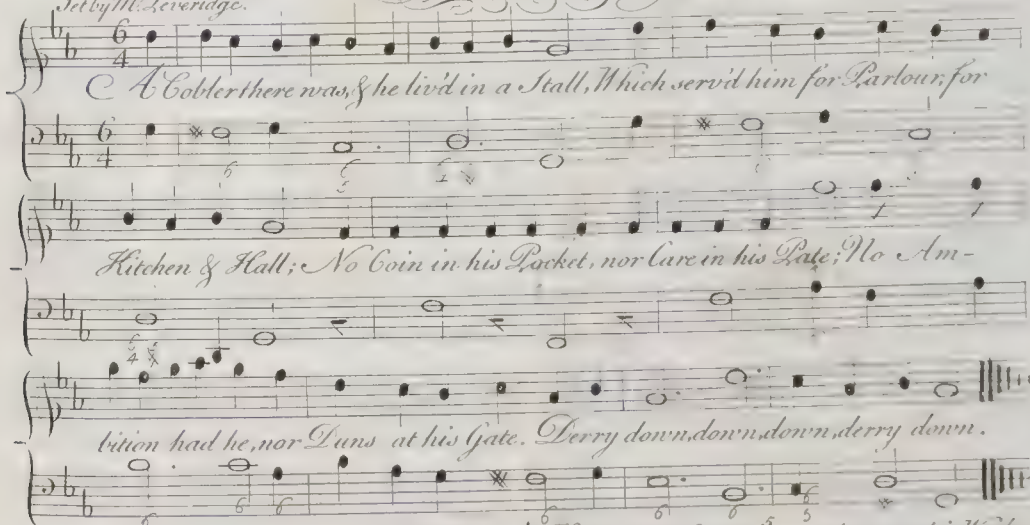 Set by Mr. Leveridge.
A Cobler there was, & he liv'd in a Stall, Which serv'd him for Parlour, for
Kitchen & Hall; No Coin in his Pocket, nor Care in his Pate; No Am-
bition had he, nor Duns at his Gate. Derry down, down, down, derry down.